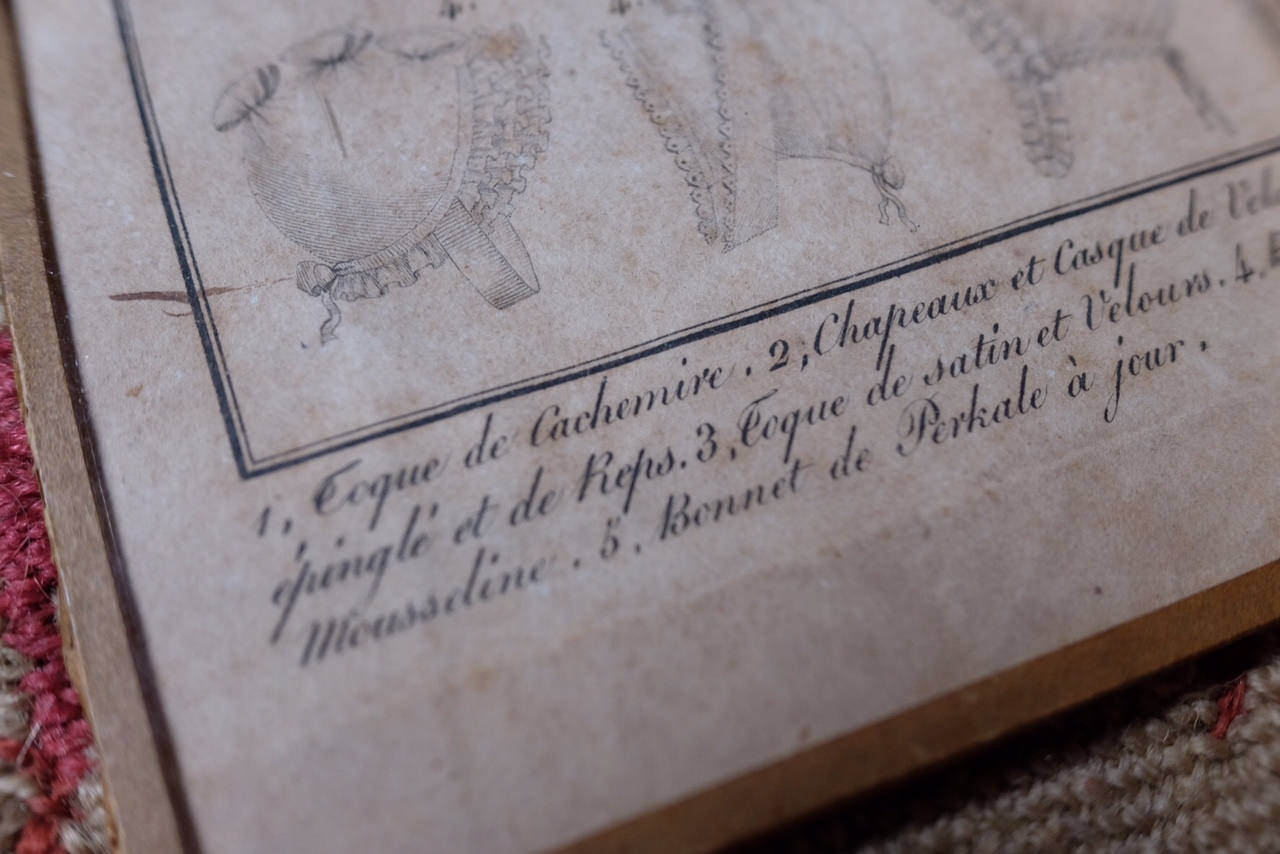 4. 4.
1, Toque de Cachemire. 2, Chapeaux et Casque de
épinglé et de Reps. 3, Toque de satin et Velours. 4.
Mousseline. 5. Bonnet de Perkale à jour.